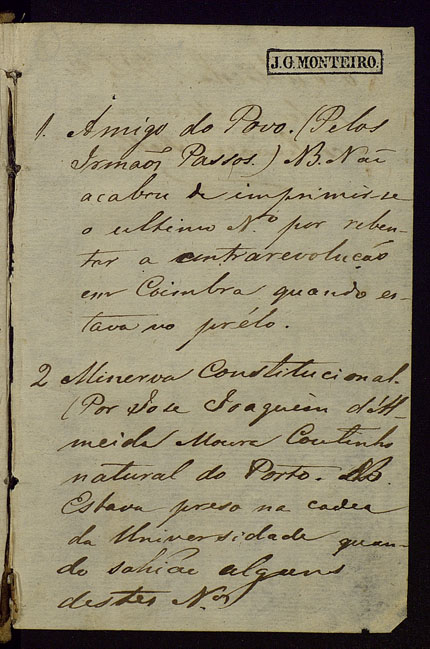 J.G. MONTEIRO.
1. Amigo do Povo. (Pelos
Irmãos Passos.) NB. Não
acabou de imprimir-se
o ultimo Nº por reben-
tar a contrarevolução
em Coimbra quando es-
tava no prélo.
2 Minerva Constitucional.
(Por Jose Joaquim d'Al-
meida Moura Coutinho
natural do Porto. NB.
Estava preso na cadea
da Universidade quan-
do sahião alguns
destes Nos